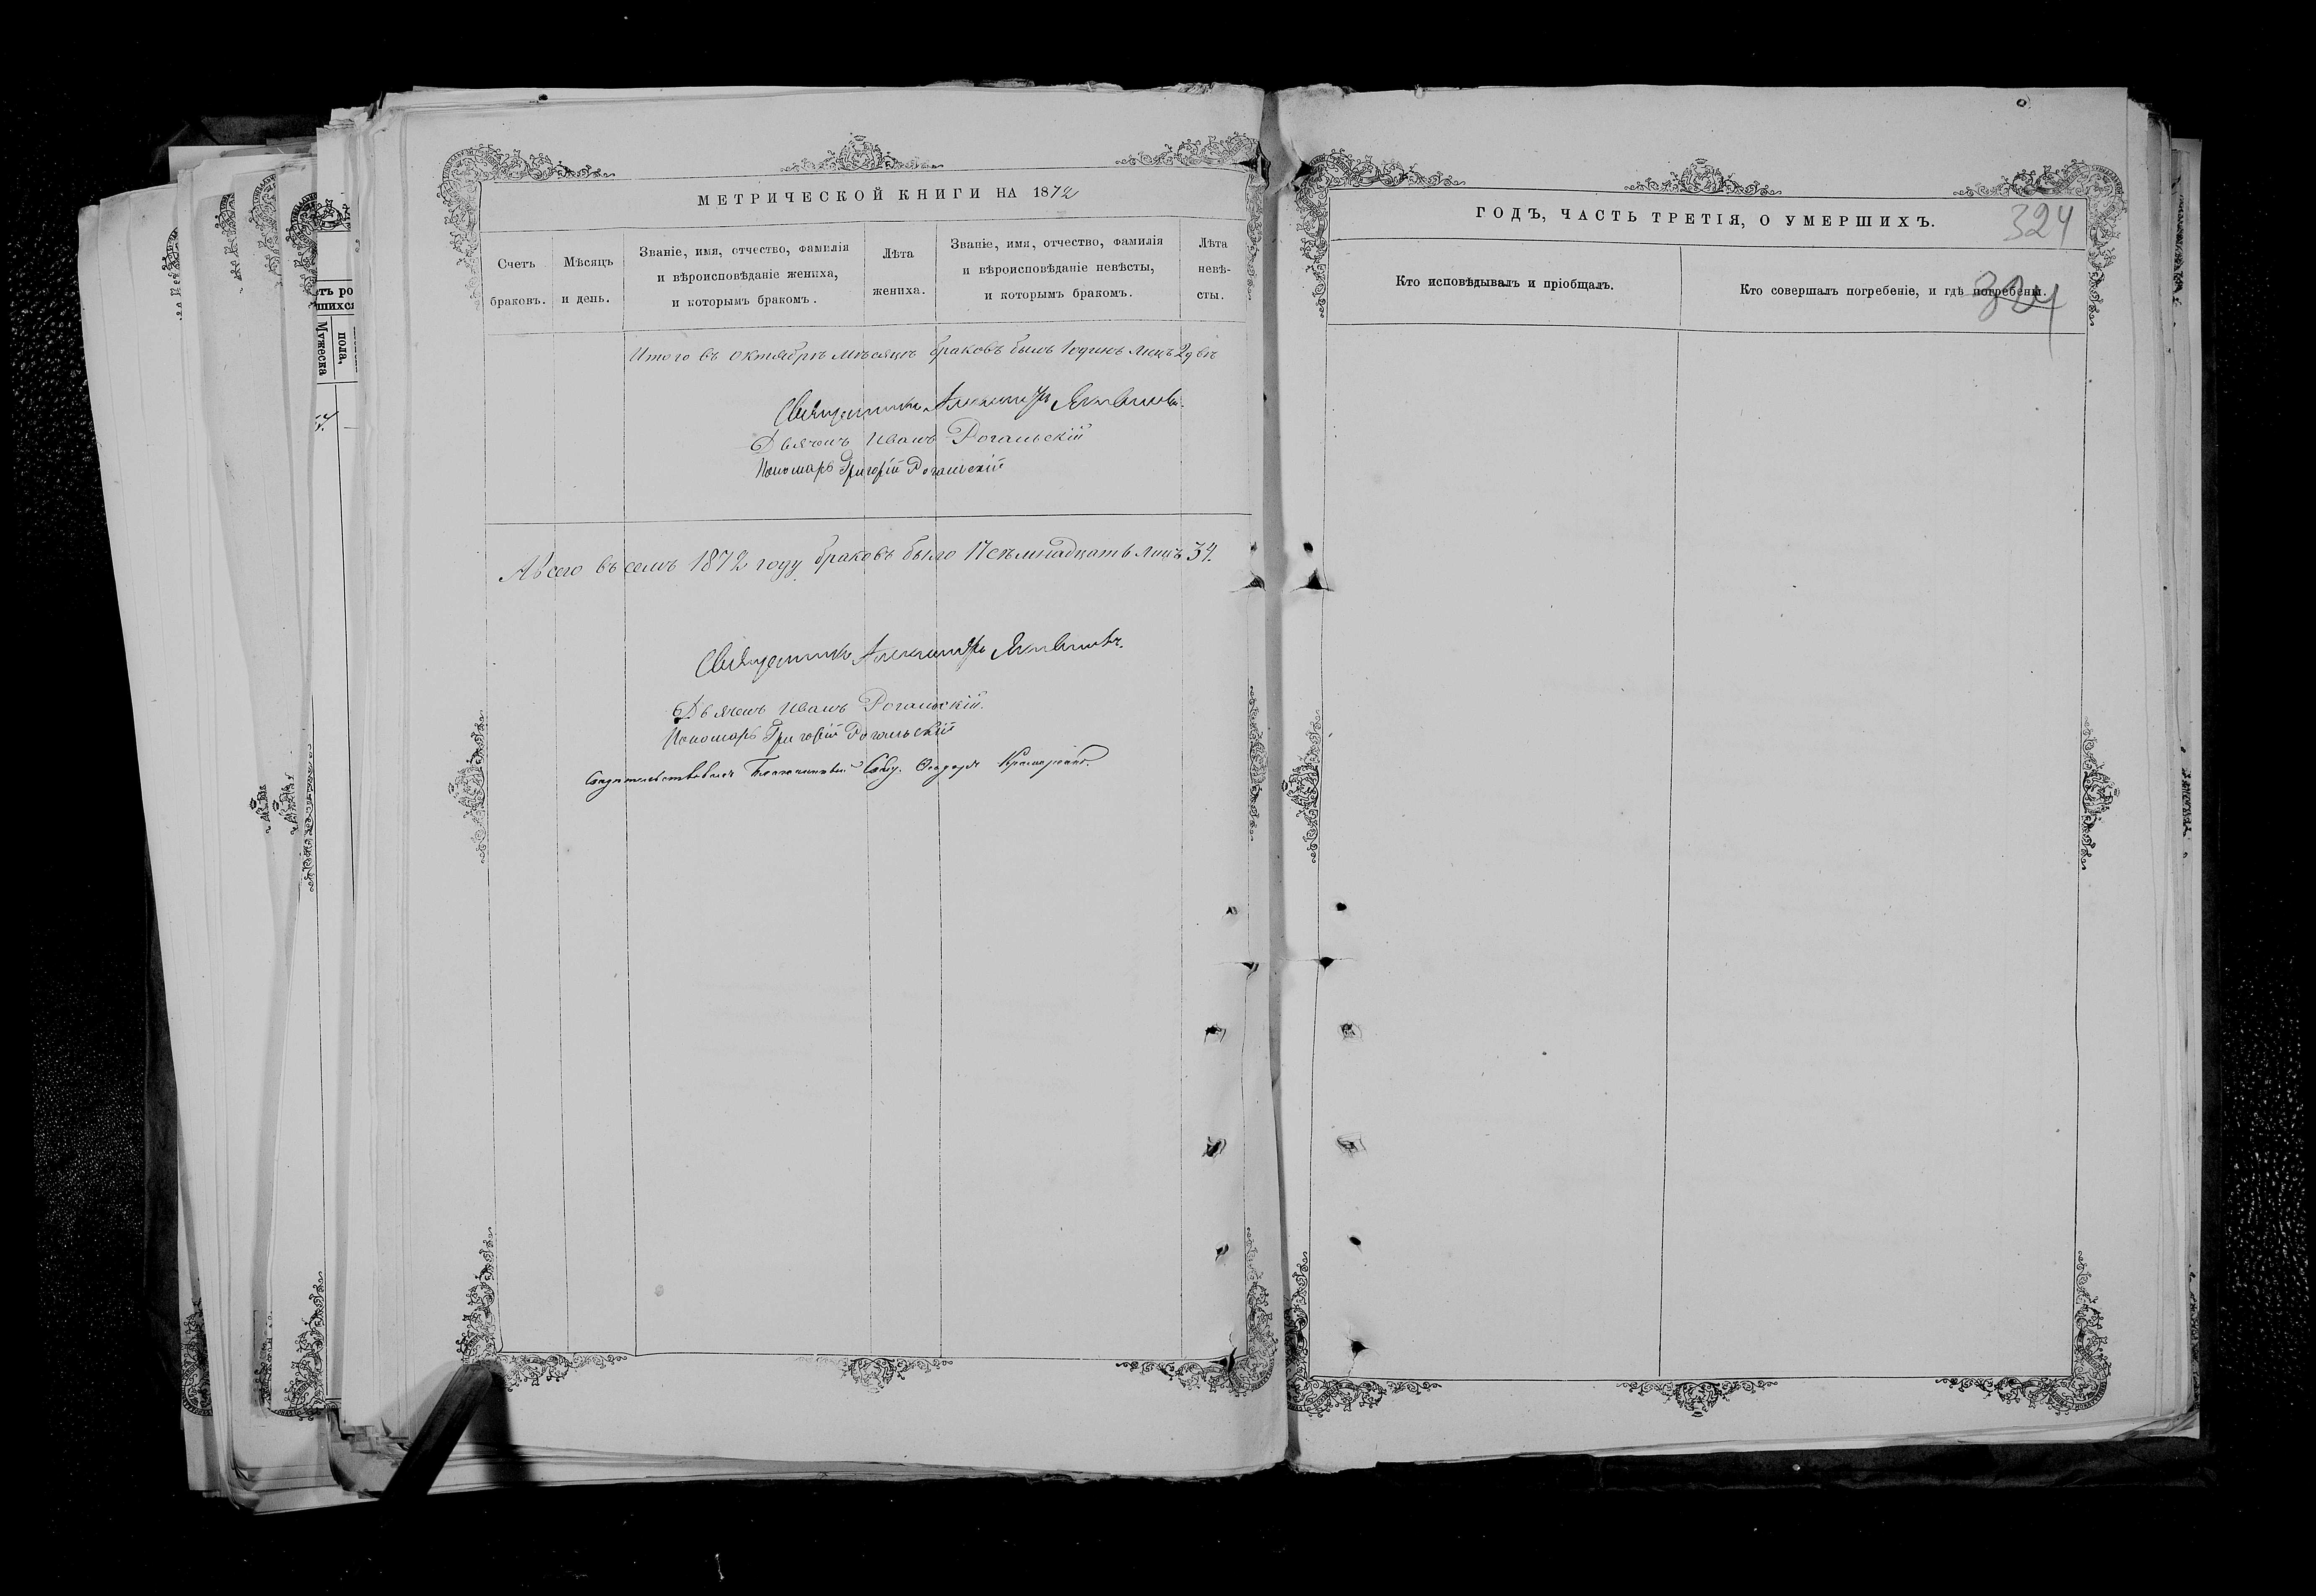 МЕТРИЧЕСКОЙ КНИГИ НА 1872
Счетъ браковъ.
Мѣсяцъ и день.
Званіе, имя, отчество, фамилія
и вѣроисповѣданіе жениха,
и которымъ бракомъ.
Лѣта жениха.
Званіе, имя, отчество, фамилія
и вѣроисповѣданіе невѣсты,
и которымъ бракомъ.
Лѣта невѣ-
сты.
Итого въ октябрѣ мѣсяцѣ браковъ былъ 1 одинъ лицъ 2 двѣ
Священникъ Александръ
Дьячекъ Иванъ Рогальскій
Пономарь Григорій Рогальскій
А всего въ семъ 1872 году браковъ было 17 семнадцать лицъ 34.
Священникъ Александръ
Дьячекъ Иванъ Рогальскій.
Пономарь Григорій Рогальскій
Свидетельствовалъ Благочинный Свящ. Ѳеодоръ
ГОДЪ, ЧАСТЬ ТРЕТІЯ, О УМЕРШИХЪ.
324
Кто исповѣдывалъ и пріобщалъ.
Кто совершалъ погребеніе, и гдѣ погребены.
324
тъ ро
шихся
Мужеска
пола,